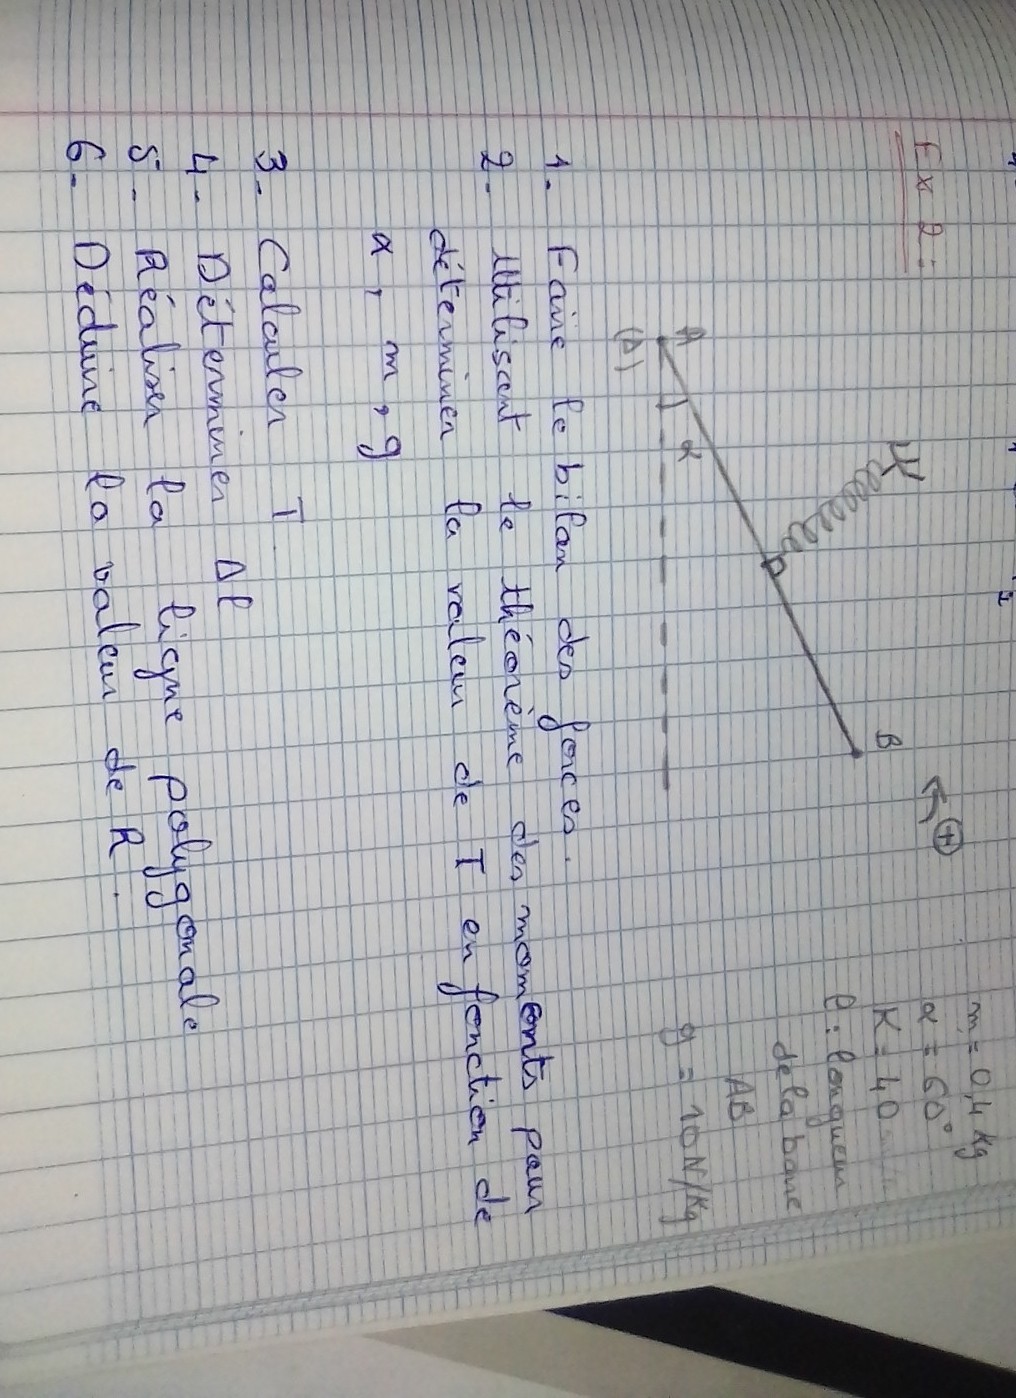 Ex 2 :
A
α
(Δ)
B
+
m = 0,4 kg
α = 60°
K = 40
l : longueur
de la barre
AB
g = 10 N/kg
1- Faire le bilan des forces.
2- Utiliscent le théorème des moments pour
déterminer la valeur de T en fonction de
α, m, g
3- Calculer T
4- Déterminer Δl
5- Réaliser la ligne polygonale
6- Déduire la valeur de R.